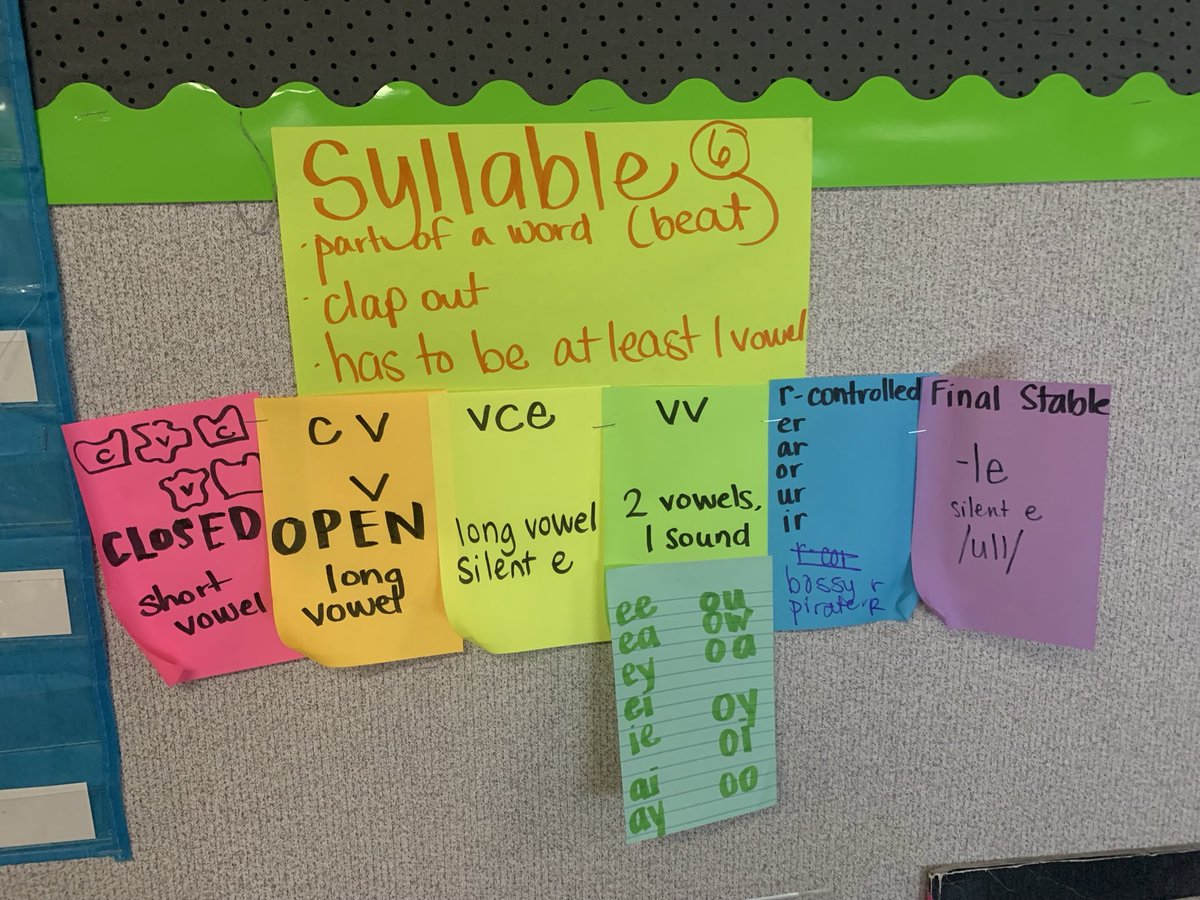 Syllable 6
· part of a word (beat)
· clap out
· has to be at least 1 vowel
C V C
V
CLOSED
short
vowel
C V
V
OPEN
long
vowel
VCE
long vowel
silent e
VV
2 vowels,
1 sound
ee ou
ea ow
ey oa
ei oy
ie oi
ai oo
ay
r-controlled
er
ar
or
ur
ir
bossy r
pirate R
Final Stable
-le
silent e
/ull/